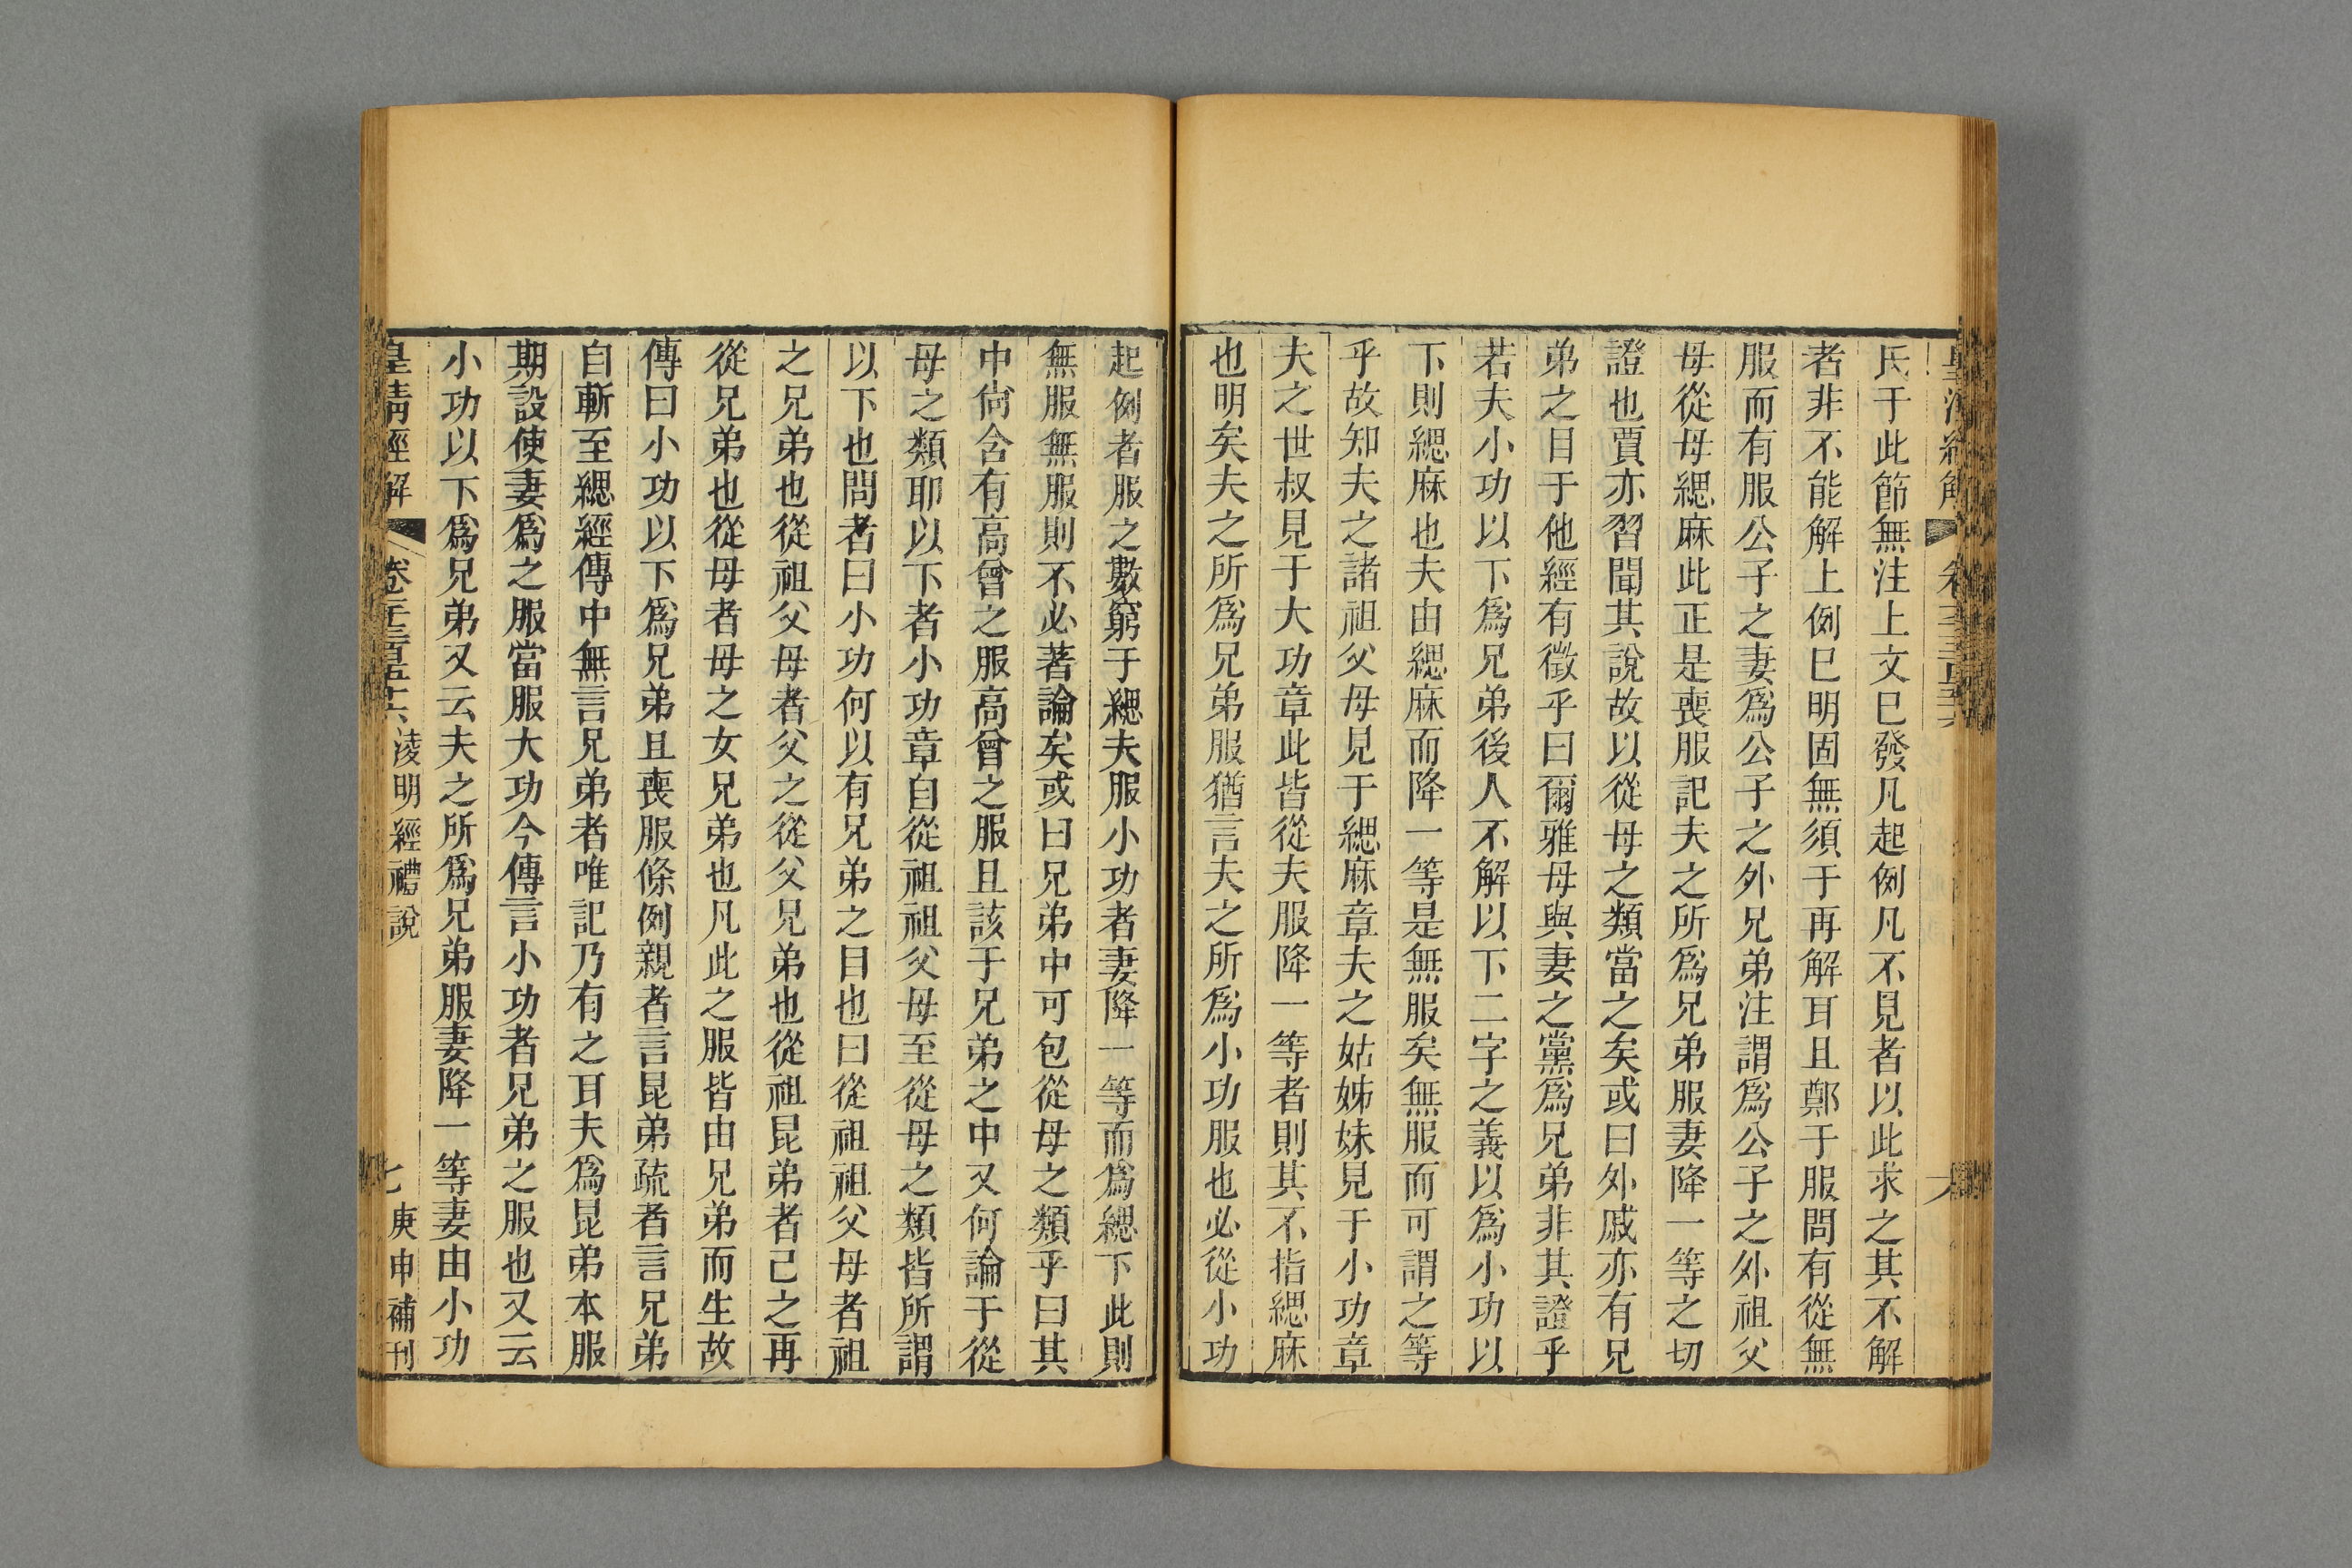 氏于此節無注上文已發凡起例凡不見者以此求之其不解
者非不能解上例已明固無須于再解耳且鄭于服問有從無
服而有服公子之妻爲公子之外兄弟注謂爲公子之外祖父
母從母緦麻此正是喪服記夫之所爲兄弟服妻降一等之切
證也賈亦習聞其說故以從母之類當之矣或曰外戚亦有兄
弟之目于他經有徵乎曰爾雅母與妻之黨爲兄弟非其證乎
若夫小功以下爲兄弟後人不解以下二字之義以爲小功以
下則緦麻也夫由緦麻而降一等是無服矣無服而可謂之等
乎故知夫之諸祖父母見于緦麻章夫之姑姊妹見于小功章
夫之世叔見于大功章此皆從夫服降一等者則其不指緦麻
也明矣夫之所爲兄弟服猶言夫之所爲小功服也必從小功
起例者服之數窮于緦夫服小功者妻降一等而爲緦下此則
無服無服則不必著論矣或曰兄弟中可包從母之類乎曰其
中尙含有高曾之服高曾之服且該于兄弟之中又何論于從
母之類耶以下者小功章自從祖祖父母至從母之類皆所謂
以下也問者曰小功何以有兄弟之目也曰從祖祖父母者祖
之兄弟也從祖父母者父之從父兄弟也從祖昆弟者己之再
從兄弟也從母者母之女兄弟也凡此之服皆由兄弟而生故
傳曰小功以下爲兄弟且喪服條例親者言昆弟疏者言兄弟
自斬至緦經傳中無言兄弟者唯記乃有之耳夫爲昆弟本服
期設使妻爲之服當服大功今傳言小功者兄弟之服也又云
小功以下爲兄弟又云夫之所爲兄弟服妻降一等妻由小功
皇清經解 卷 淩明經禮說 七 庚申補刊